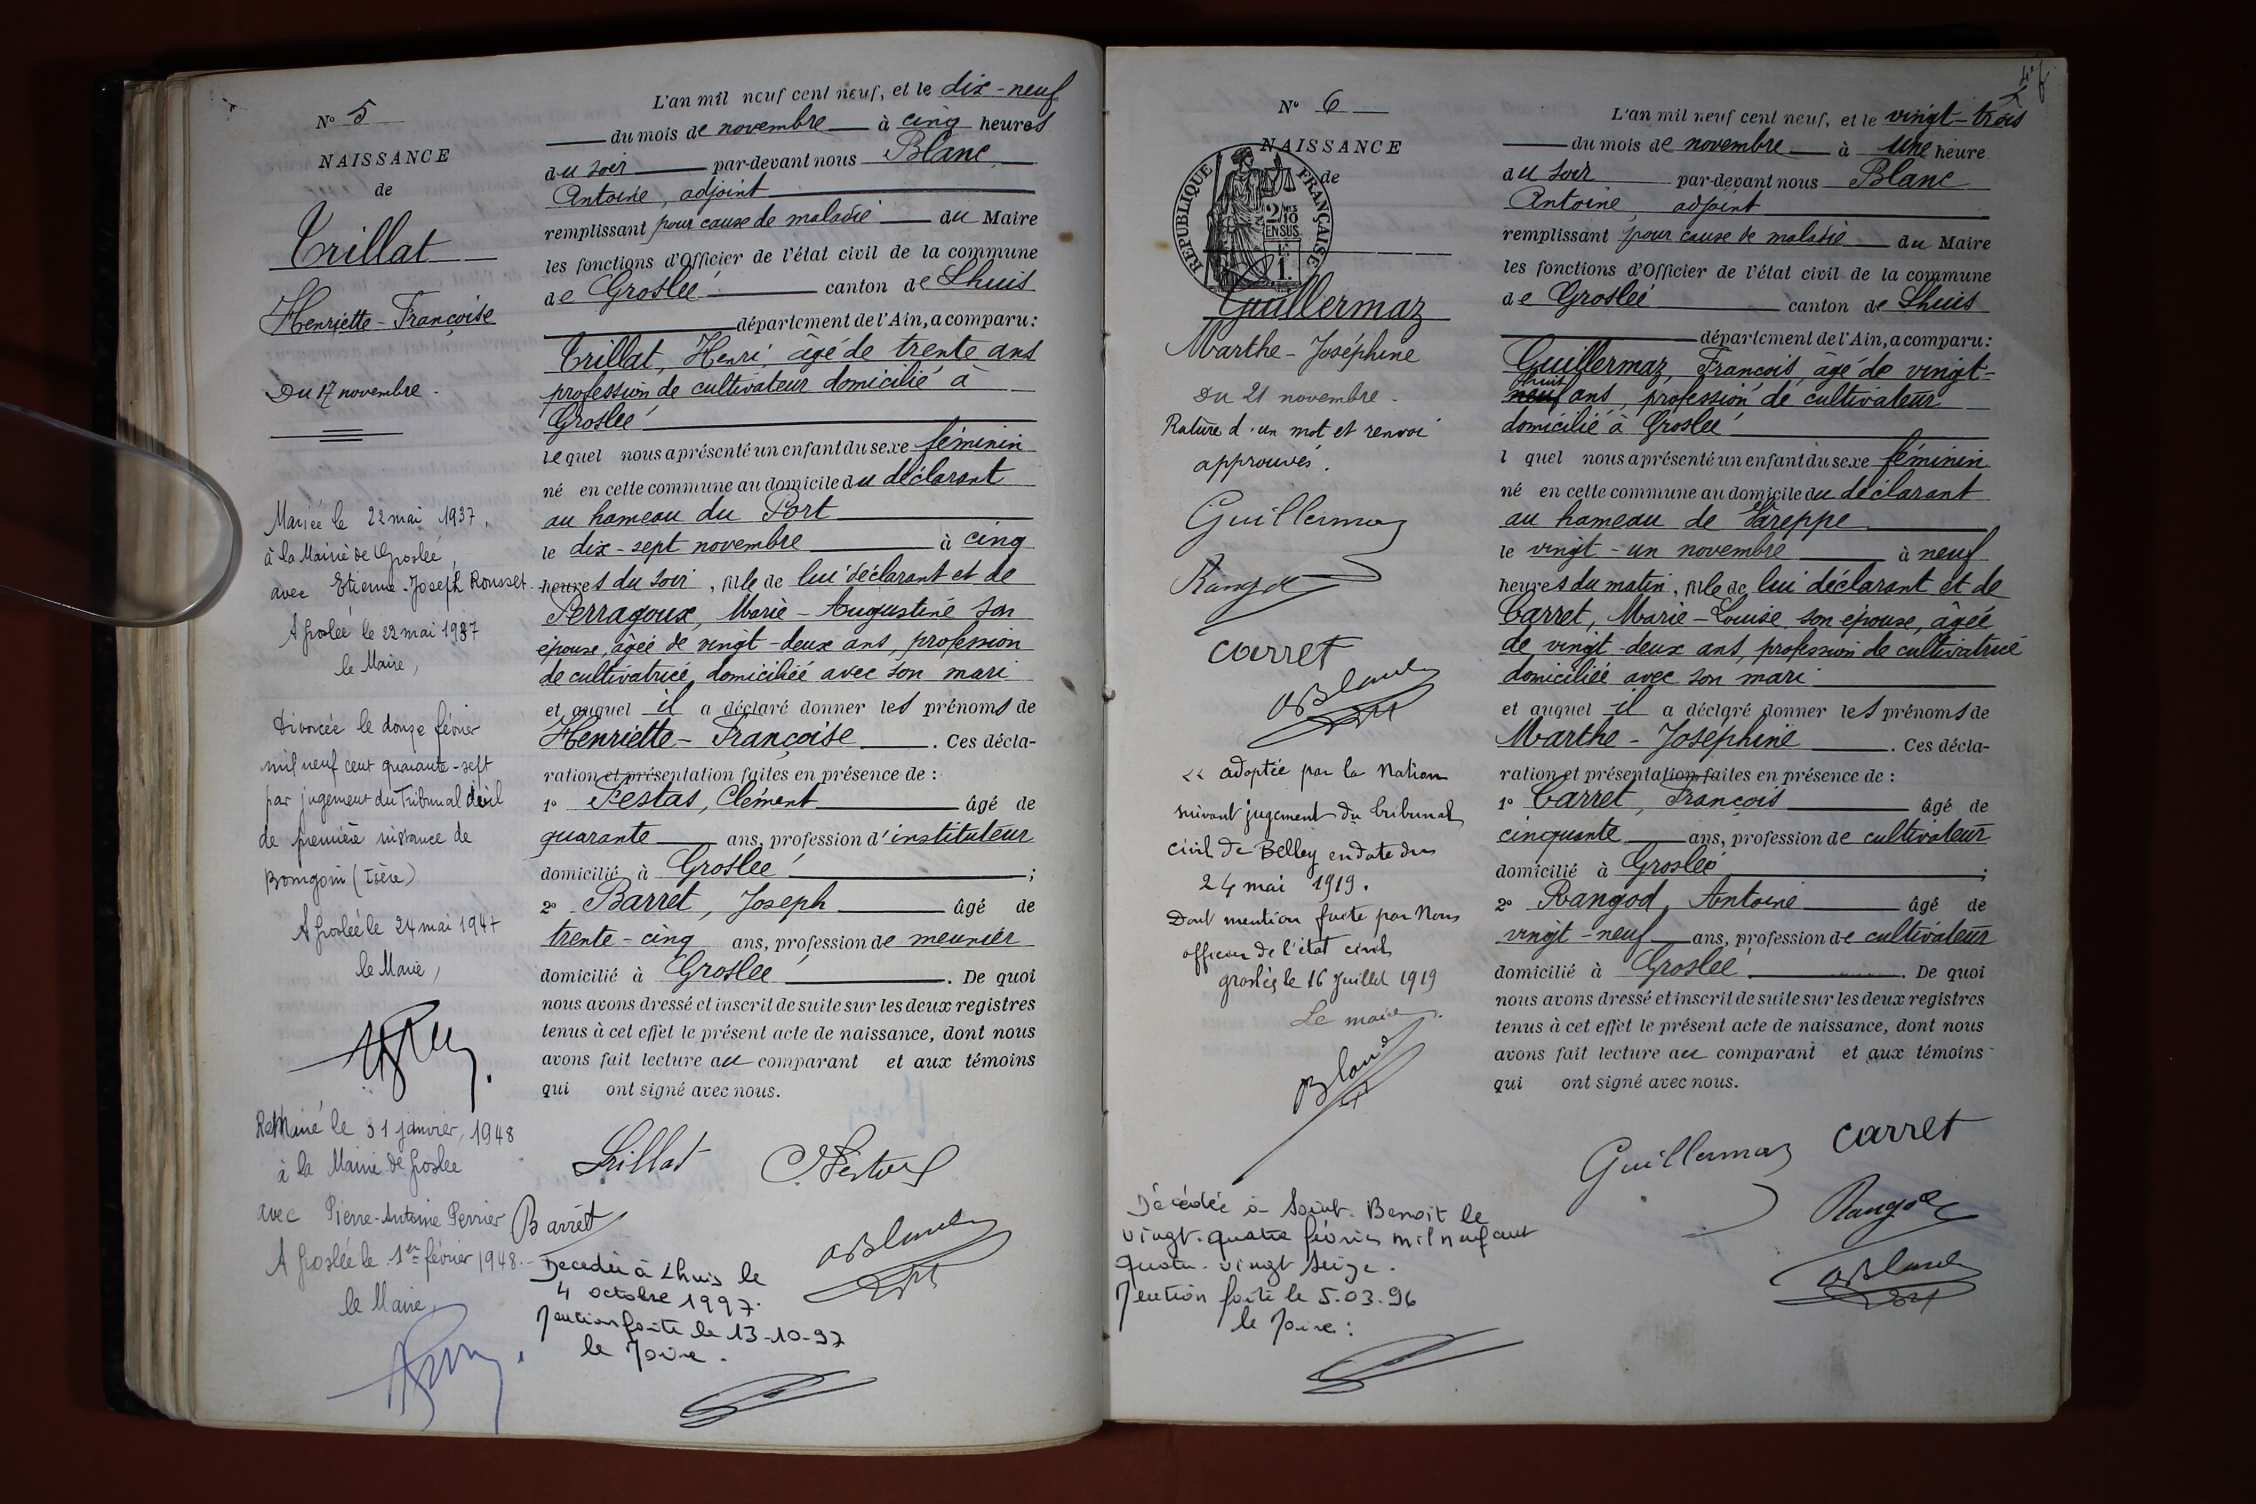 N° 5
NAISSANCE
de
Trillat
Henriette-Françoise
Du 17 novembre.
Mariée le 22 mai 1937,
à la Mairie de Groslée,
avec Etienne-Joseph Rousset
A Groslée le 22 mai 1937
le Maire,
Divorcée le douze février
mil neuf cent quarante-sept
par jugement du Tribunal civil
de première instance de
Bourgoin (Isère)
A Groslée le 24 mai 1947
le Maire,
Remarié le 31 janvier, 1948
à la Mairie de Groslée
avec Pierre-Antoine Perrier
A Groslée le 1er février 1948.-
le Maire,
L'an mil neuf cent neuf, et le dix-neuf
du mois de novembre à cinq heures
du soir par-devant nous Blanc
Antoine, adjoint
remplissant pour cause de maladie du Maire
les fonctions d'Officier de l'état civil de la commune
de Groslée canton de Lhuis
département de l'Ain, a comparu:
Trillat, Henri âgé de trente ans
profession de cultivateur domicilié à
Groslée
lequel nous a présenté un enfant du sexe féminin
né en cette commune au domicile du déclarant
au hameau du Port
le dix-sept novembre à cinq
heures du soir, fille de lui déclarant et de
Perragoux, Marie-Augustine son
épouse, âgée de vingt-deux ans, profession
de cultivatrice, domiciliée avec son mari
et auquel il a déclaré donner les prénoms de
Henriette-Françoise. Ces décla-
ration et présentation faites en présence de :
1° Festas, Clément âgé de
quarante ans, profession d'instituteur
domicilié à Groslée ;
2° Barret, Joseph âgé de
trente-cinq ans, profession de meunier
domicilié à Groslée. De quoi
nous avons dressé et inscrit de suite sur les deux registres
tenus à cet effet le présent acte de naissance, dont nous
avons fait lecture au comparant et aux témoins
qui ont signé avec nous.
Trillat
C. Festas
Barret
A Blanc
Décédée à Lhuis le
4 octobre 1997.
Mention faite le 13-10-97
le Maire.
N° 6
NAISSANCE
de
RÉPUBLIQUE FRANÇAISE
2/10
EN SUS
Guillermaz
Marthe-Joséphine
Du 21 novembre.
Rature d'un mot et renvoi
approuvés.
Guillermaz
Rangod
carret
A Blanc
<< adoptée par la Nation
suivant jugement du tribunal
civil de Belley en date du
24 mai 1919.
Dont mention faite par Nous
officier de l'état civil
groslée le 16 Juillet 1919
Le maire.
Blanc
Décédée à Saint-Benoit le
vingt-quatre février mil neuf cent
quatre-vingt seize.
Mention faite le 5.03.96
le Maire:
L'an mil neuf cent neuf, et le vingt-trois
du mois de novembre à une heure
du soir par-devant nous Blanc
Antoine, adjoint
remplissant pour cause de maladie du Maire
les fonctions d'Officier de l'état civil de la commune
de Groslée canton de Lhuis
département de l'Ain, a comparu:
Guillermaz, François âgé de vingt-
huit
neuf ans, profession de cultivateur
domicilié à Groslée
l quel nous a présenté un enfant du sexe féminin
né en cette commune au domicile du déclarant
au hameau de Vareppe
le vingt-un novembre à neuf
heures du matin, fille de lui déclarant et de
Carret, Marie-Louise son épouse, âgée
de vingt-deux ans, profession de cultivatrice
domiciliée avec son mari
et auquel il a déclaré donner les prénoms de
Marthe-Joséphine. Ces décla-
ration et présentation faites en présence de :
1° Carret, François âgé de
cinquante ans, profession de cultivateur
domicilié à Groslée ;
2° Rangod, Antoine âgé de
vingt-neuf ans, profession de cultivateur
domicilié à Groslée. De quoi
nous avons dressé et inscrit de suite sur les deux registres
tenus à cet effet le présent acte de naissance, dont nous
avons fait lecture au comparant et aux témoins
qui ont signé avec nous.
Guillermaz
carret
Rangod
A Blanc